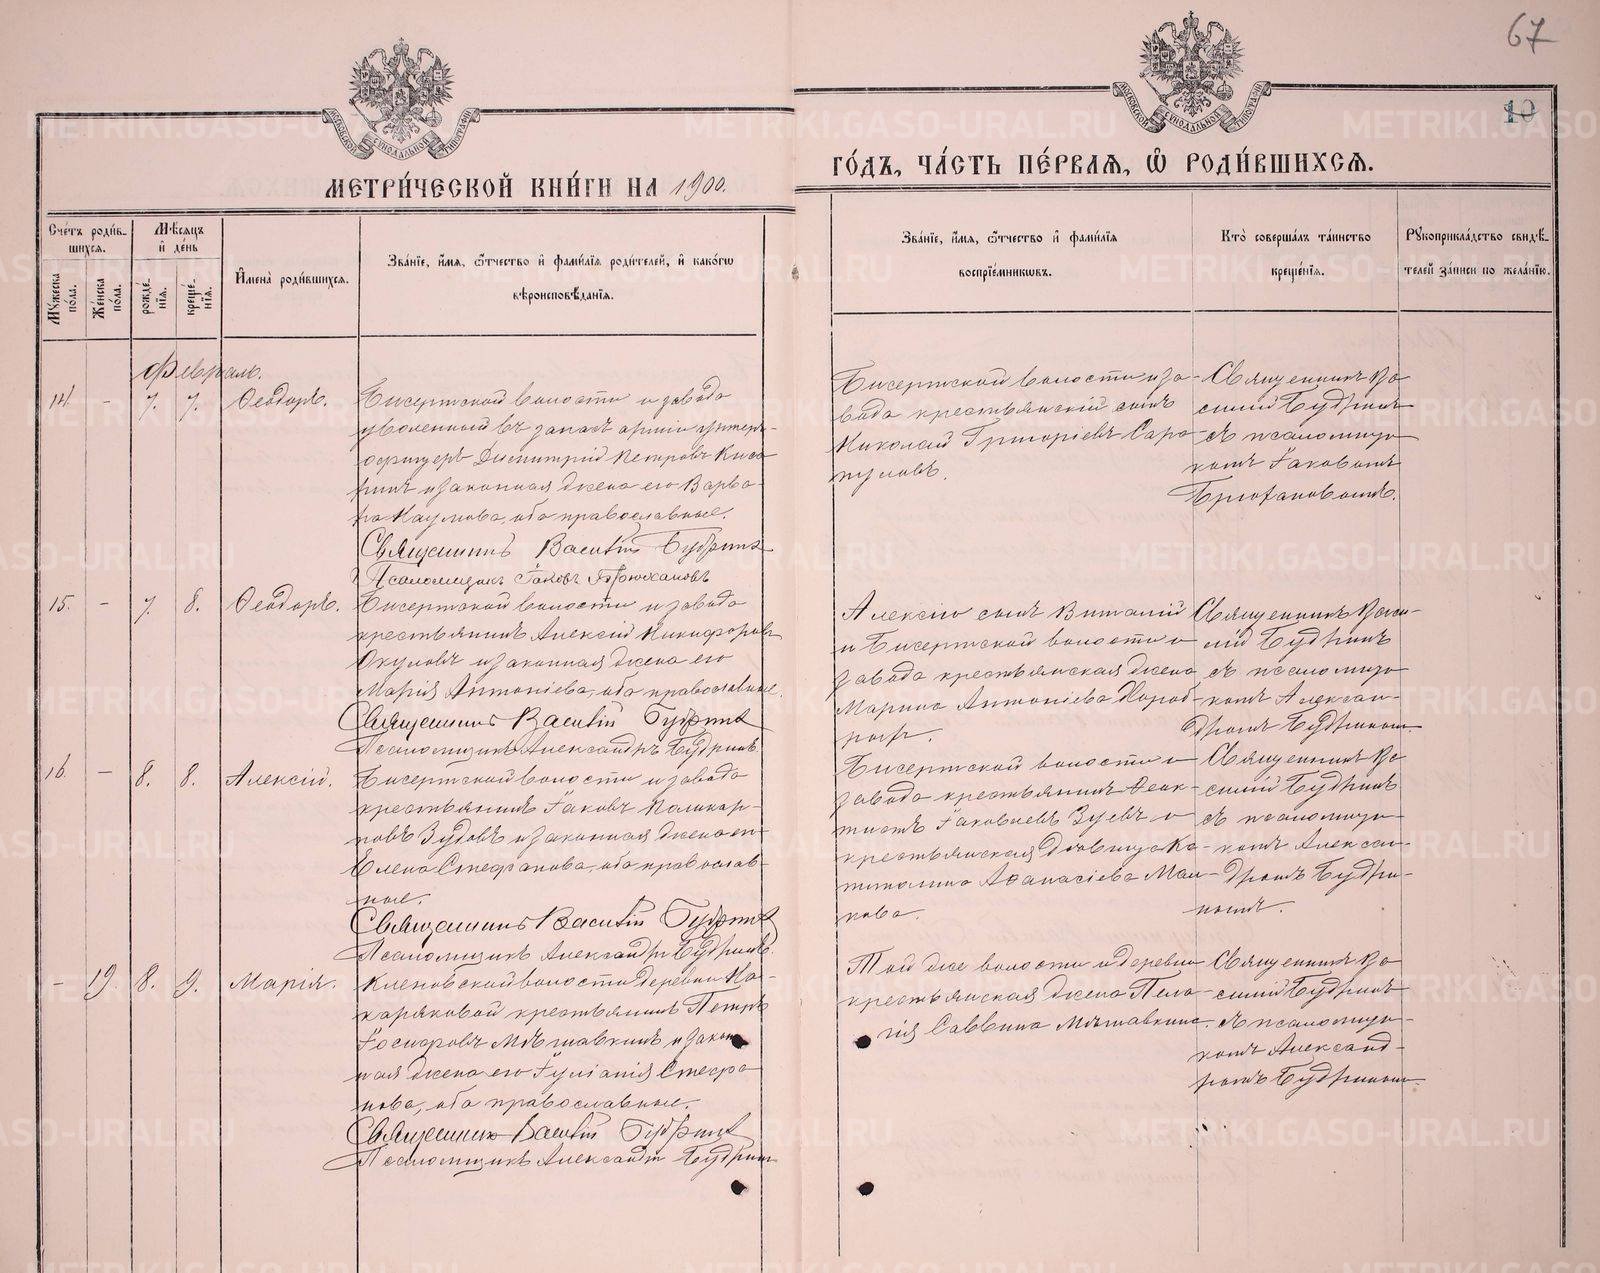 67
10
МОСКОВСКОЙ СѴНОДАЛЬНОЙ ТИПОГРАФІИ
МОСКОВСКОЙ СѴНОДАЛЬНОЙ ТИПОГРАФІИ
МЕТРИ́ЧЕСКОЙ КНИ́ГИ НА 1900.
ГО́ДЪ, ЧА́СТЬ ПЕ́РВАЯ, Ѽ РОДИ́ВШИХСЯ.
Сче́тъ роди́в-
шихся.
Мѣ́сяцъ
и҆ де́нь
Мꙋ́жеска
по́ла.
Же́нска
по́ла.
рожде́-
нія.
креще́-
нія.
И҆мена̀ роди́вшихся.
Зва́ніе, и҆́мя, ѻ҆́тчество и҆ фами́лія роди́телей, и҆ како́гѡ
вѣроисповѣ́данія.
Зва́ніе, и҆́мя, ѻ҆́тчество и҆ фами́лія
воспріе́мникѡвъ.
Кто̀ соверша́лъ та́инство
креще́нія.
Рꙋкоприкла́дство свидѣ́-
телей за́писи по жела́нію.
Февраль.
14. - 7. 7. Ѳеодоръ.
Бисертской волости и завода
уволенный въ запасъ арміи унтеръ-
офицеръ Димитрій Петровъ Киса
ринъ и законная жена его Варва-
ра Наумова, оба православные.
Священникъ Василій Будринъ
Псаломщикъ Іаковъ Брюхановъ
Бисертской волости и за-
вода крестьянскій сынъ
Николай Григоріевъ Сара
пуловъ.
Священникъ Ва
силій Будринъ
съ псаломщи
комъ Іаковомъ
Брюхановомъ.
15. - 7. 8. Ѳеодоръ.
Бисертской волости и завода
крестьянинъ Алексій Никифоровъ
Окуловъ и законная жена его
Марія Антоніева, оба православные.
Священникъ Василій Будринъ
Псаломщикъ Александръ Будринъ.
Алексія сынъ Виталій
и Бисертской волости и
завода крестьянская жена
Марина Антоніева
Священникъ Васи-
лій Будринъ
съ псаломщи
комъ Алексан-
дромъ Будриномъ
16. - 8. 8. Алексій.
Бисертской волости и завода
крестьянинъ Іаковъ Поликар-
повъ Зудовъ и законная жена его
Елена Стефанова, оба православ-
ные.
Священникъ Василій Будринъ
Псаломщикъ Александръ Будринъ.
Бисертской волости и
завода крестьянинъ Ѳеок-
тистъ Іаковлевъ Зуевъ и
крестьянская дѣвица Ка-
питолина Аѳанасіева
Священникъ Ва
силій Будринъ
съ псаломщи-
комъ Алексан-
дромъ Будри-
номъ.
- 19. 8. 9. Марія.
Кленовской волости деревни Ка-
каряковой крестьянинъ Петръ
Іосифовъ Мѣшавкинъ и закон
ная жена его Іуліанія Стефа
нова, оба православные.
Священникъ Василій Будринъ
Псаломщикъ Александръ Будринъ
Той же волости и деревни
крестьянская жена Пела-
гія Саввина Мѣшавкина.
Священникъ Ва
силій Будринъ
съ псаломщи-
комъ Александ-
ромъ Будриномъ
METRIKI.GASO-URAL.RU